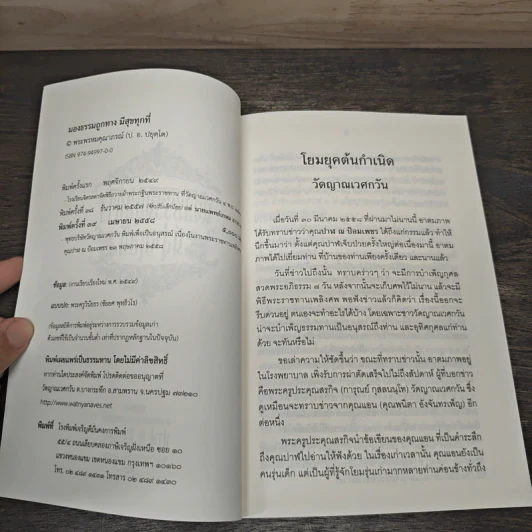 มองธรรมถูกทาง มีสุขทุกที่
© พระพรหมคุณาภรณ์ (ป. อ. ปยุตฺโต)
ISBN 974-94997-0-0
พิมพ์ครั้งแรก พฤศจิกายน ๒๕๔๙
พิมพ์ครั้งที่ ๓๘ ธันวาคม ๒๕๕๗
พิมพ์ครั้งที่ ๓๙ เมษายน ๒๕๕๘
คุณปาฬ ณ ป้อมเพชร ๒๓ พฤษภาคม ๒๕๕๘
ข้อมูล: (งานเรียบเรียงใหม่ พ.ศ. ๒๕๔๙)
แบบปก: พระครูวินัยธร (ชัยยศ พุทฺธิวโร)
พิมพ์เผยแพร่เป็นธรรมทาน โดยไม่มีค่าลิขสิทธิ์
หากท่านใดประสงค์จัดพิมพ์ โปรดติดต่อขออนุญาตที่
วัดญาณเวศกวัน ต.บางกระทึก อ.สามพราน จ.นครปฐม ๗๓๒๑๐
http://www.watnyanaves.net
พิมพ์ที่ โรงพิมพ์เจริญดีมั่นคงการพิมพ์
แขวงหนองแขม เขตหนองแขม กรุงเทพฯ ๑๐๑๖๐
โยมยุคต้นกำเนิด
วัดญาณเวศกวัน
เมื่อวันที่ ๓๐ มีนาคม ๒๕๕๘ ที่ผ่านมาไม่นานนี้ อาตมภาพ
ได้รับทราบข่าวว่าคุณปาฬ ณ ป้อมเพชร ได้ถึงแก่กรรมแล้ว ทำให้
นึกขึ้นมาว่า ตั้งแต่คุณปาฬเจ็บป่วยครั้งใหญ่ต่อเนื่องมานี้ อาตม
ภาพได้ไปเยี่ยมท่าน ที่บ้านของท่านเพียงครั้งเดียว และนานแล้ว
วันที่ข่าวไปถึงนั้น ทราบคร่าวๆ ว่า จะมีการบำเพ็ญกุศล
สวดพระอภิธรรม ๗ วัน หลังจากนั้นจะเก็บศพไว้ก่อน แล้วจะมี
พิธีพระราชทานเพลิงศพ พอฟังข่าวแล้วก็คิดว่า เรื่องนี้ออกจะ
รีบด่วนอยู่ ตนเองจะทำอะไรได้บ้าง โดยเฉพาะชาววัดญาณเวศกวัน
น่าจะบำเพ็ญธรรมทานเป็นอนุสรณ์ถึงท่าน และอุทิศกุศลแก่ท่าน
ด้วย จะทันหรือไม่
ขอเล่าความให้ชัดขึ้นว่า ขณะที่ทราบข่าวนั้น อาตมภาพอยู่
ในโรงพยาบาล เพิ่งรับการผ่าตัดเสร็จไปไม่ถึงสัปดาห์ ผู้ที่บอกข่าว
คือพระครูประคุณสรกิจ (การุณย์ กุสลนนฺโท) วัดญาณเวศกวัน ซึ่ง
ดูเหมือนจะทราบข่าวจากคุณแอน (คุณพนิตา อังจันทรเพ็ญ) อีก
ต่อหนึ่ง
พระครูประคุณสรกิจนำข้อเขียนของคุณแอน ที่เป็นคำระลึก
ถึงคุณปาฬไปอ่านให้ฟังด้วย ในเรื่องเก่าเวลานั้น คุณแอนยังเป็น
คนรุ่นเด็ก แต่เป็นผู้ที่รู้จักโยมรุ่นเก่ามากหลายท่านค่อนข้างทั่วถึง